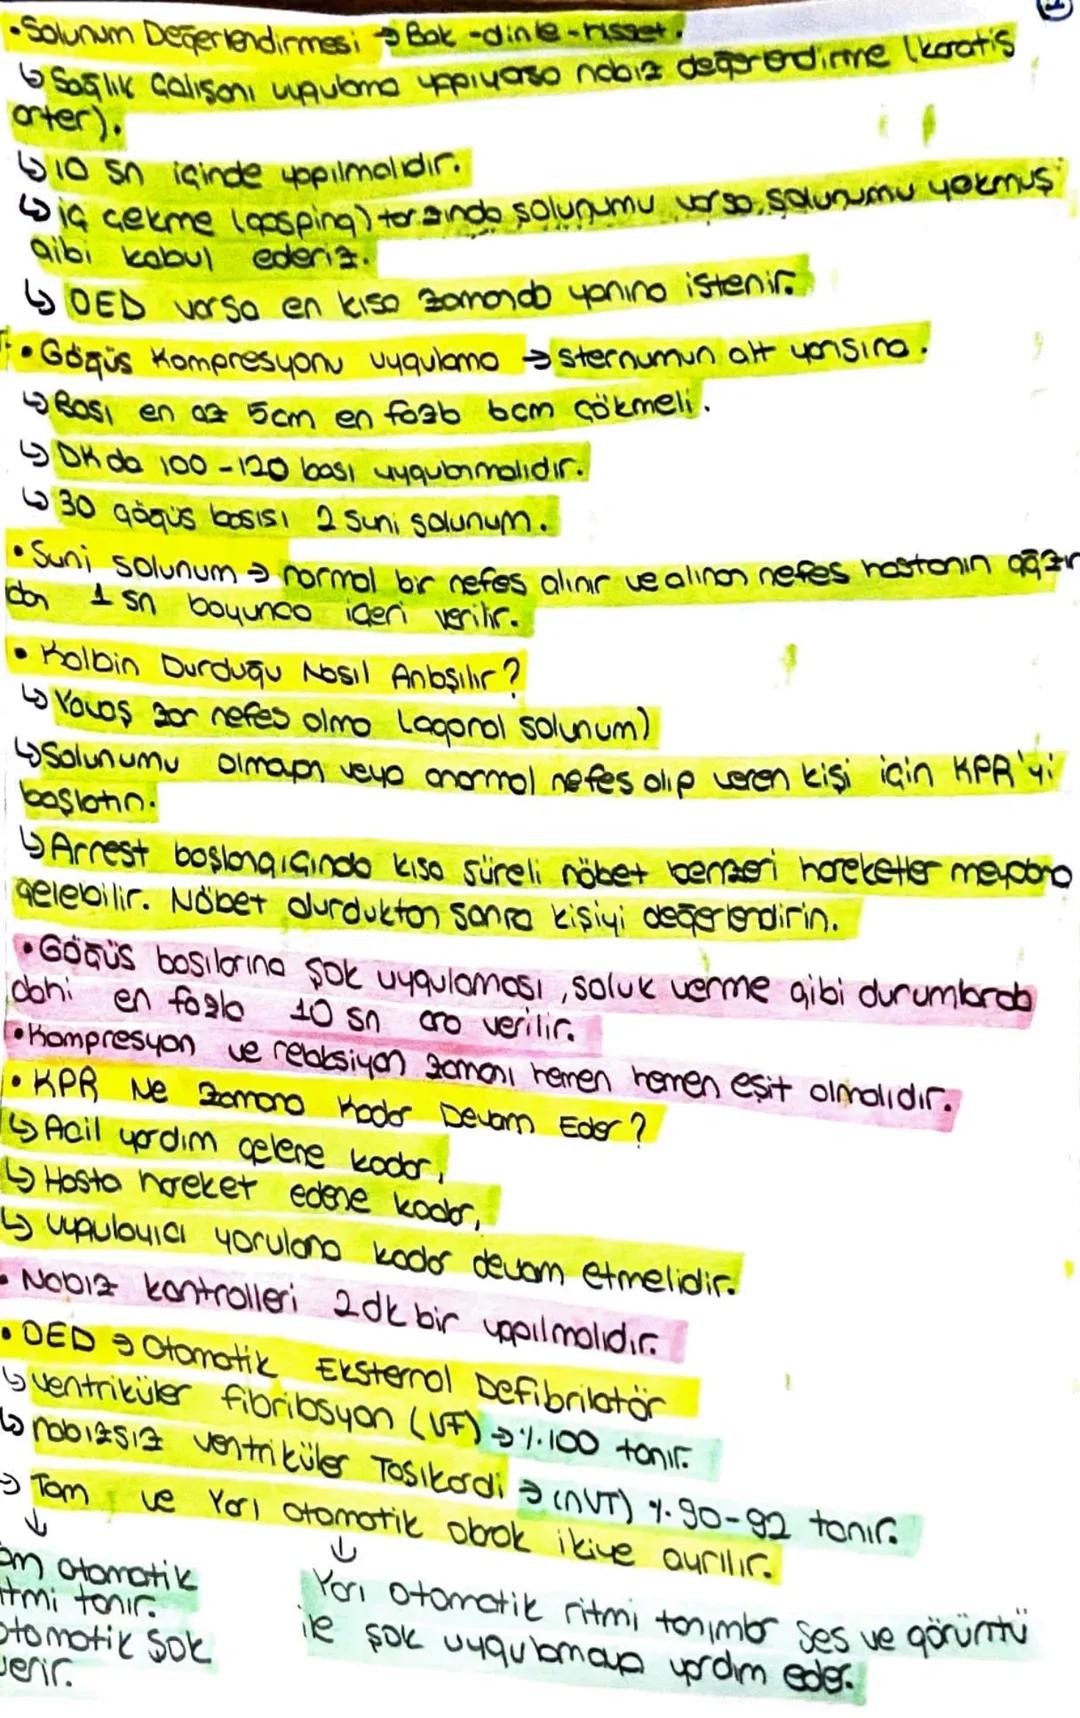 • Solunum Değerlendirmesi → Bak - dinle - hisset.
↳ Sağlık Çalışanı uygulama yapıyorsa nabız değerlendirme (karatis
arter).
↳ 10 sn içinde yapılmalıdır.
↳ iç çekme (gasping) tarzında solunumu varsa, solunumu yokmuş
gibi kabul ederiz.
↳ OED varsa en kısa zamanda yanına istenir.
• Göğüs Kompresyonu uygulama → sternumun alt yarısına.
↳ Bası en az 5cm en fazla 6cm çökmeli.
↳ DK da 100 - 120 bası uygulanmalıdır.
↳ 30 göğüs basısı 2 Suni solunum.
• Suni solunum → normal bir nefes alınır ve alınan nefes hastanın ağzın
dan 1 sn boyunca içeri verilir.
• Kalbin Durduğu Nasıl Anlaşılır?
↳ Yavaş zor nefes alma (agonal solunum)
↳ Solunumu olmayan veya anormal nefes alıp veren kişi için KPR'yi
başlatın.
↳ Arrest başlangıcında kısa süreli nöbet benzeri hareketler meydana
gelebilir. Nöbet durduktan sonra kişiyi değerlendirin.
• Göğüs basılarına şok uygulaması, soluk verme gibi durumlarda
dahi en fazla 10 sn ara verilir.
• Kompresyon ve relaksiyon zamanı hemen hemen eşit olmalıdır.
• KPR Ne Zamana Kadar Devam Eder?
↳ Acil yardım gelene kadar,
↳ Hasta hareket edene kadar,
↳ uygulayıcı yorulana kadar devam etmelidir.
• Nabız kontrolleri 2 dk bir yapılmalıdır.
• OED → Otomatik Eksternal Defibrilatör
↳ ventriküler fibrilasyon (VF) → %100 tanır.
↳ nabızsız ventriküler Taşikardi → (nVT) %90-92 tanır.
→ Tam ve Yarı otomatik olarak ikiye ayrılır.
↓ ↓
am otomatik
itmi tanır.
otomatik şok
verir.
Yarı otomatik ritmi tanımlar ses ve görüntü
ile şok uygulamaya yardım eder.